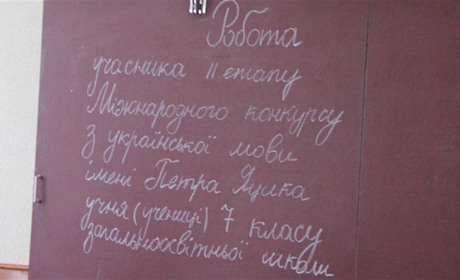 Робота
учасника ІІ етапу
Міжнародного конкурсу
з української мови
імені Петра Яцика
учня (учениці) 7 класу
загальноосвітньої школи